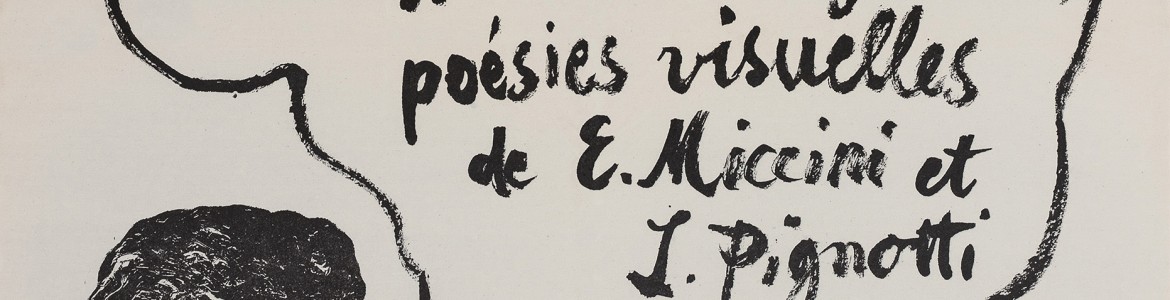 poésies visuelles
de E. Miccini et
L. Pignotti